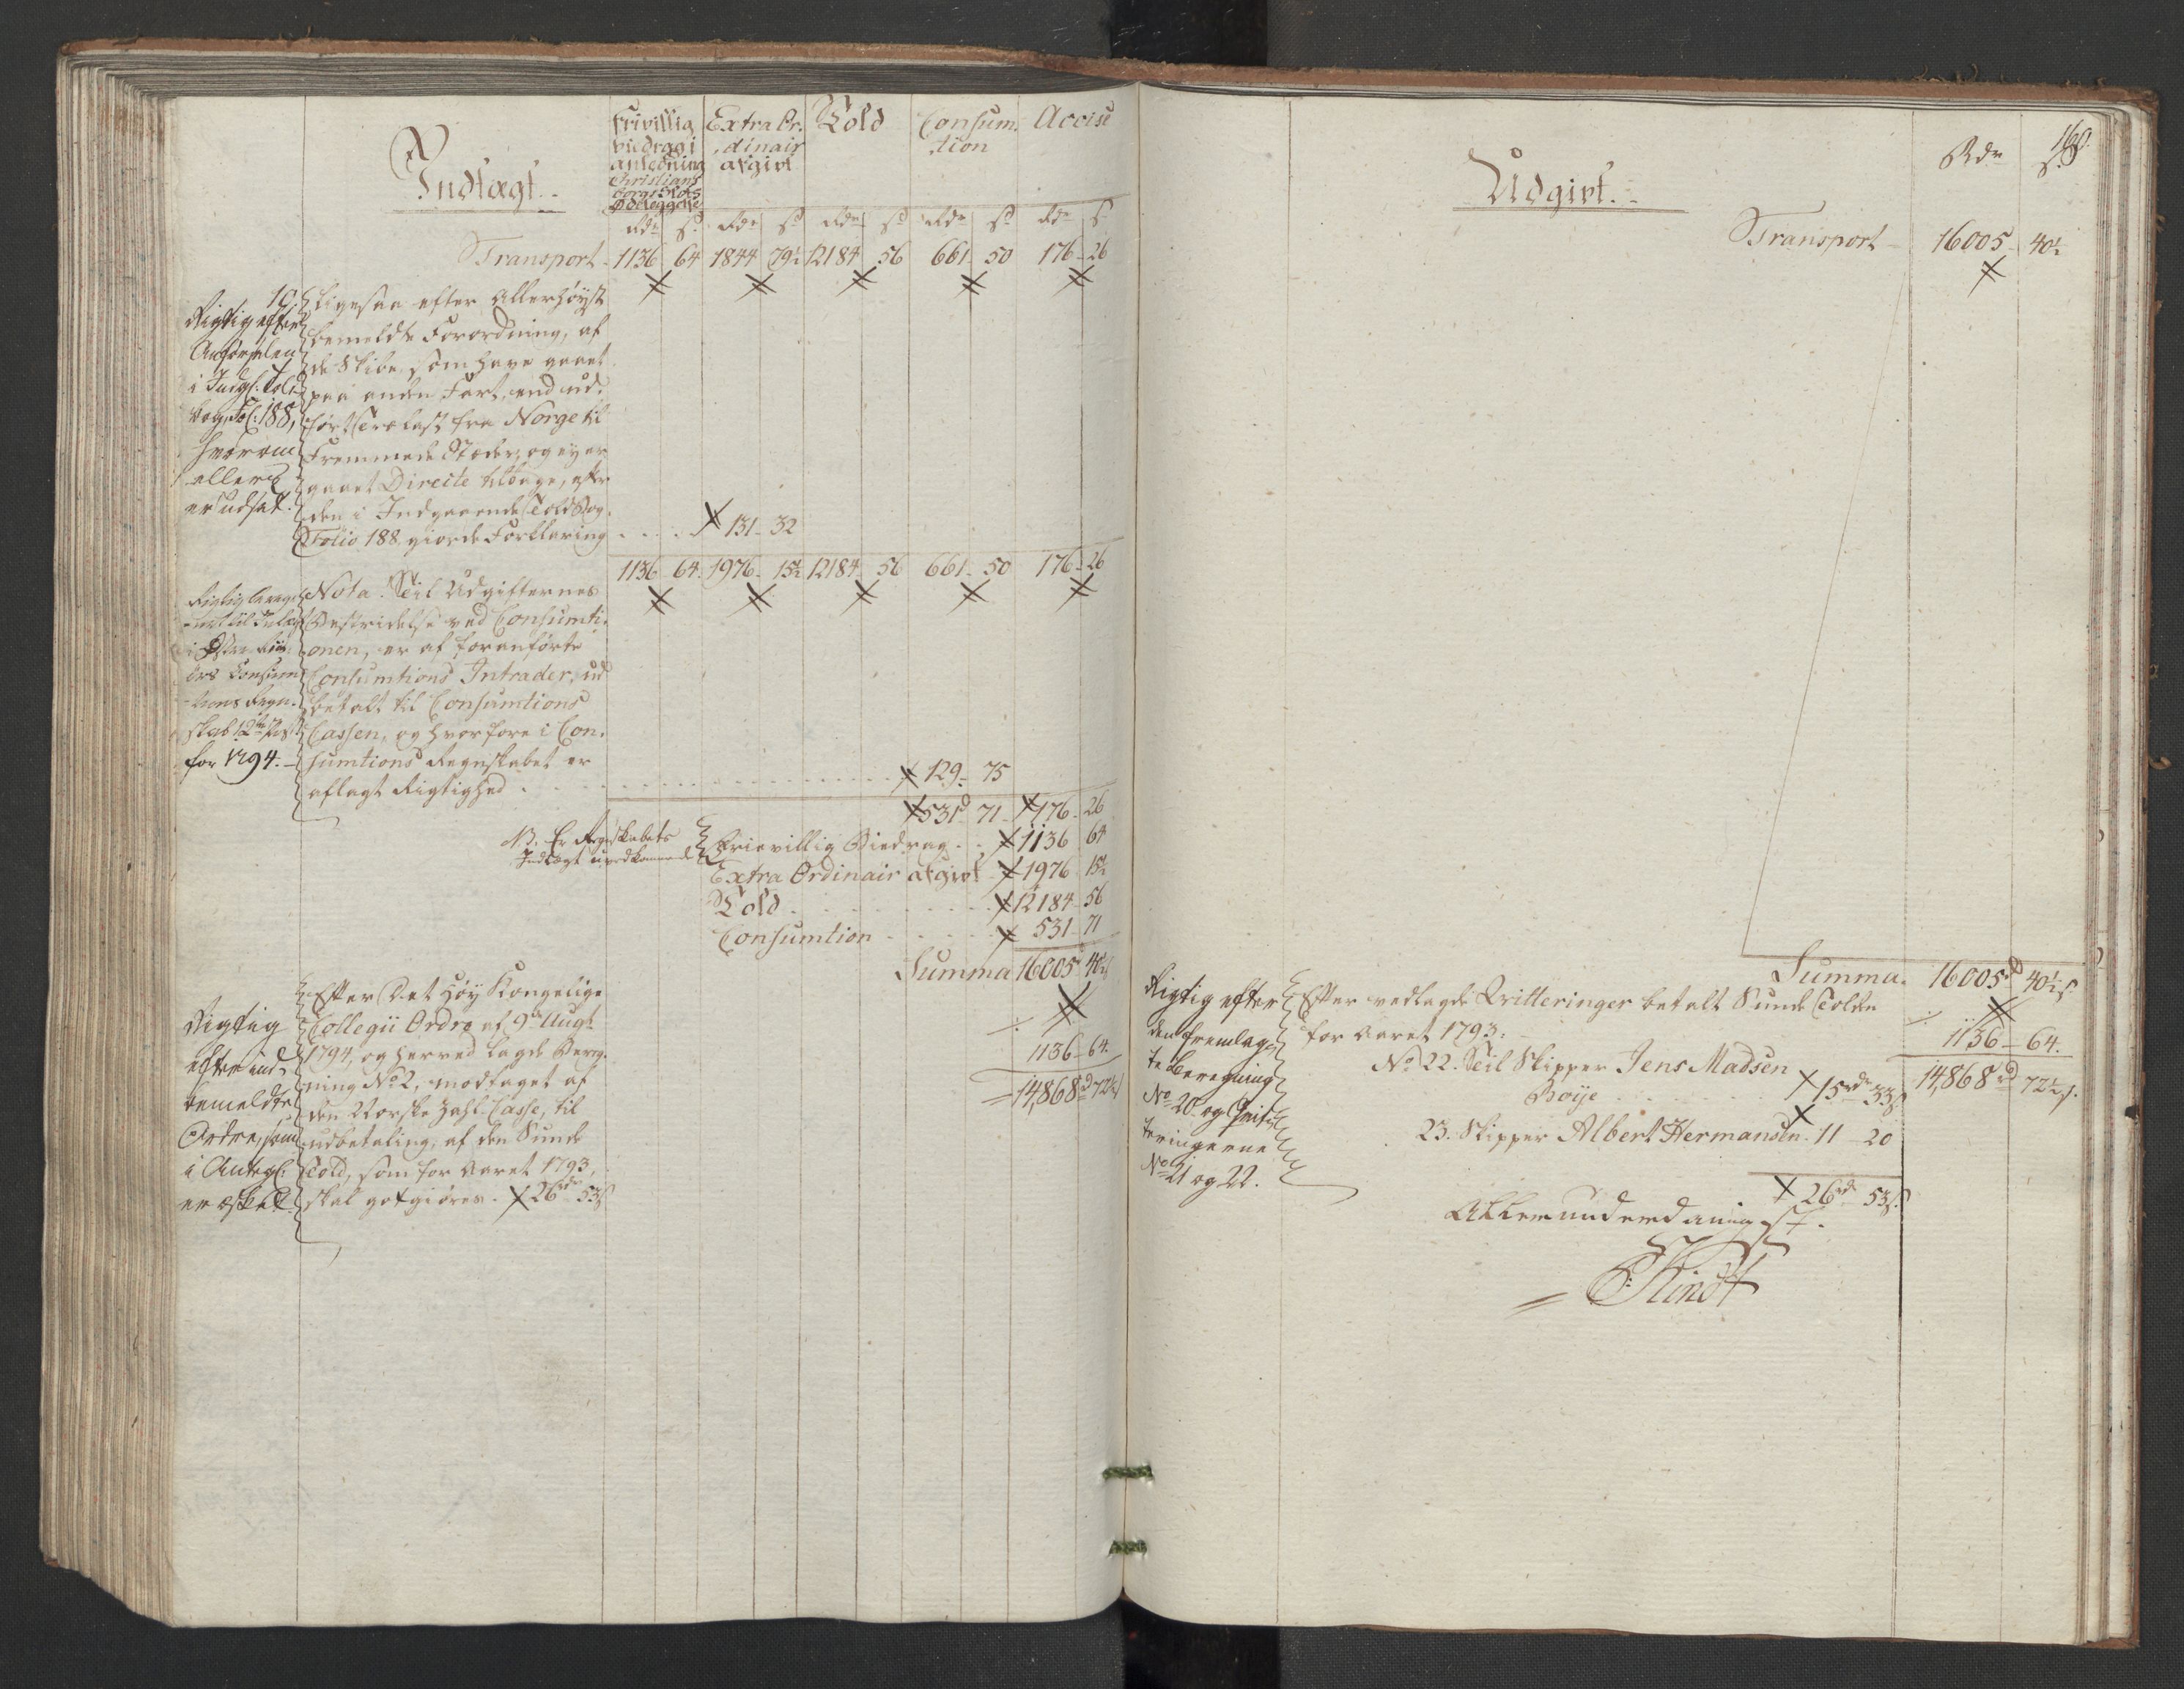 Indtægt.
Frivillig
bidrag i
anledning
Christians
borg Slots
Ødelæggelse
Extra Or-
dinair
afgivt
Told
Consum-
tion
Accise
Rdr s. Rdr s. Rdr s. Rdr s. Rdr s.
Transport 1136 64 1844 79½ 12184 56 661 50 176 26
10.
Rigtig efter
Anførselen
i Indg: Told
bog Fol: 188,
hvorom
ellers
er udsat.
Ligesaa efter Allerhøyst
bemeldte Forordning, af
de Skibe som have gaaet
paa anden Fart, end ud-
ført Trælast fra Norge til
Fremmede Stæder, og ey er
gaaet Directe tilbage, efter
den i Indgaaende Told Bog
Folio 188 giorde Forklaring 131 32
1136 64 1976 15½ 12184 56 661 50 176 26
Rigtig bereg-
net til Indtægt
i Øster Riis-
öers Consum-
tions Regn-
skab 12te Post
for 1794.
Nota. Til Udgifternes
Bestridelse ved Consumti-
onen, er af foranførte
Consumtions Intrader, ud
betalt til Consumtions
Cassen, og hvorfore i Con-
sumtions Regnskabet er
aflagt Rigtighed 129 75
531 71 176 26
NB. Er Regnskabets
Indtægt uvedkommende
Frievillig Biedrag 1136 64
Extra Ordinair afgivt 1976 15½
Told 12184 56
Consumtion 531 71
Summa 16005 40½
1136 64.
14,868 72½
Rigtig
efter ind-
bemeldte
Ordre, som
i Antegl:
er æsket.
Efter Det Høy Kongelige
Collegii Ordre af 9de Augt
1794, og herved lagde Bereg-
ning No 2, modtaget af
den Norske Zahl-Casse, til
udbetaling, af den Sunde
Told, som for Aaret 1793,
skal godtgiøres. 26rdr 53s
160.
Udgivt.
Rdr s.
Transport 16005 40½
Summa 16005 40½ s
1136 64.
14,868 rd 72½ s.
Rigtig efter
den fremlag-
te Beregning
No 20. og Qvit-
teringerne
No 21 og 22.
Efter vedlagde Qvitteringer betalt Sunde Tolden
for Aaret 1793:
No 22. Til Skipper Jens Madsen
Boÿe 15rdr 33s
23. Skipper Albert Hermansen 11 20
26rd 53s.
Allerunderdanigst.
Flindt